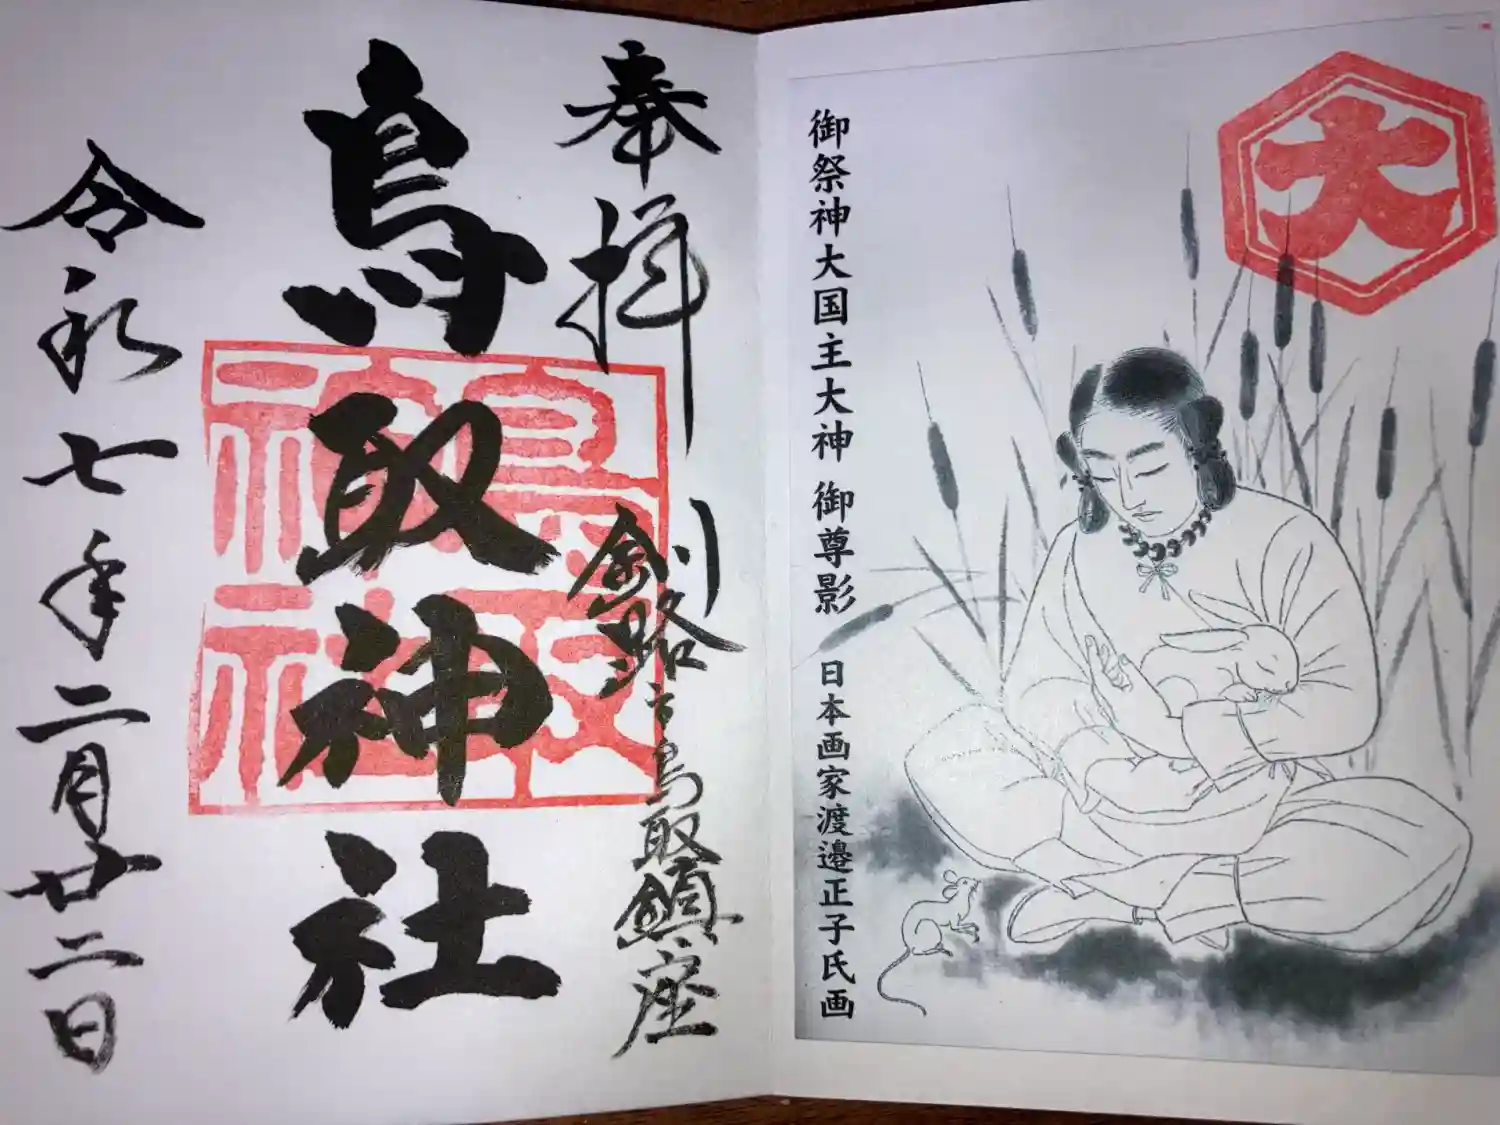 大
御祭神大国主大神 御尊影 日本画家渡邉正子氏画
奉拝
釧路之鳥取鎮座
鳥取神社
鳥取神社
令和七年二月廿二日